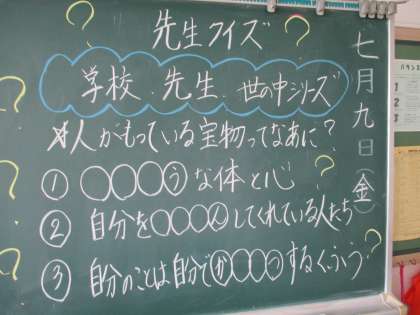 先生クイズ
学校.先生.世の中シリーズ
人がもっている宝物ってなあに?
① ○○○うな体と心
② 自分を○○○んしてくれている人たち
③ 自分のことは自分でか○○つするくふう
七月九日(金)